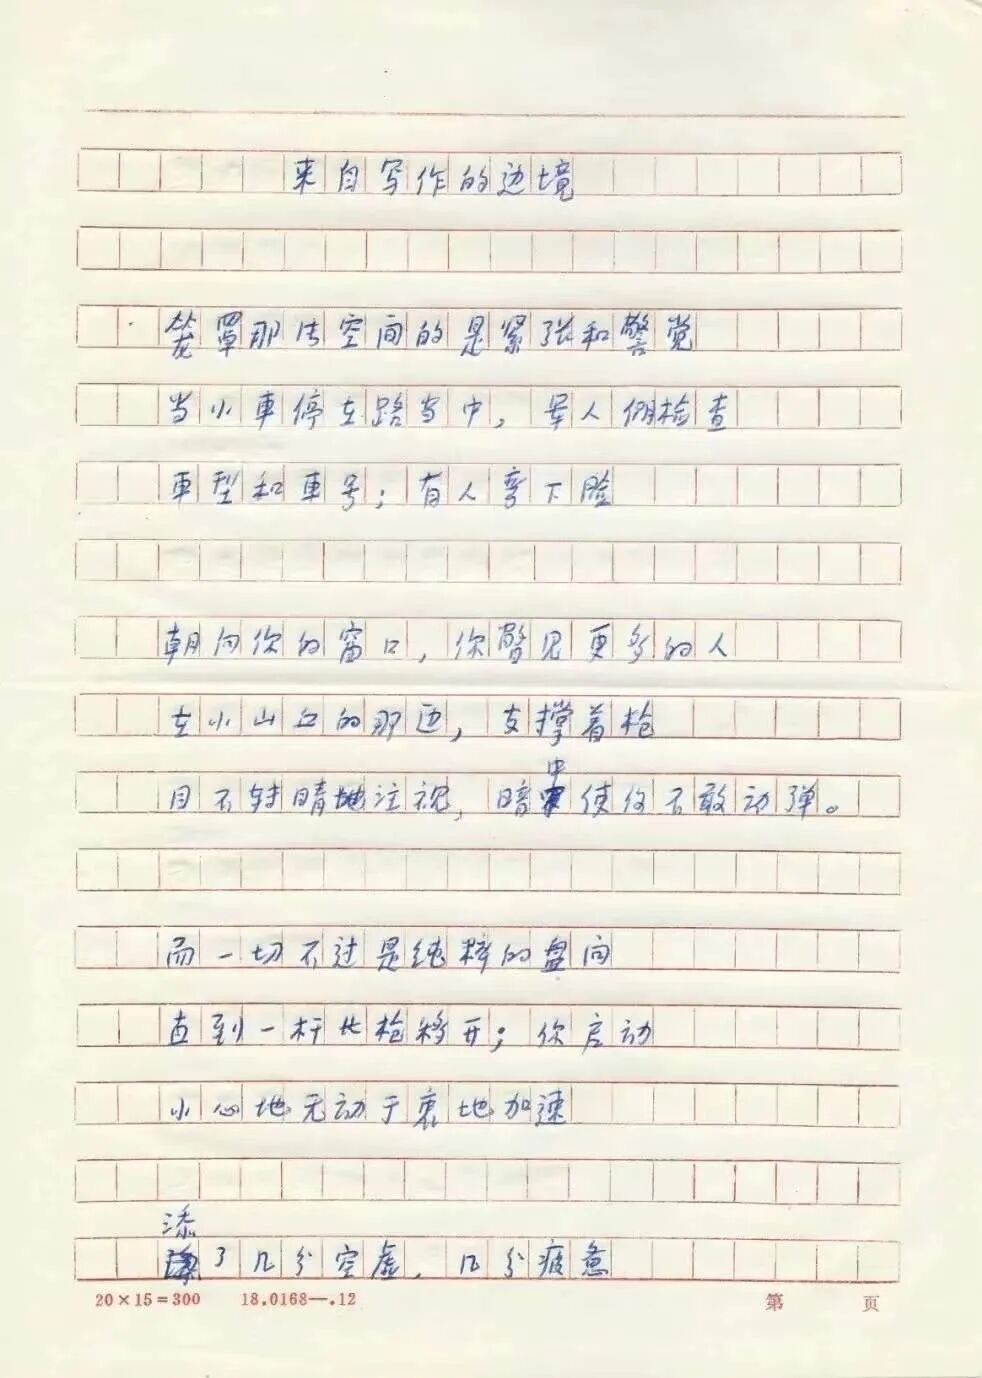 来自写作的边境
笼罩那片空间的是紧张和警觉
当小車停在路当中，軍人俩检查
車型和車号；有人弯下脸
朝向你的窗口，你瞥见更多的人
在小山丘的那边，支撑着枪
目不转睛地注视，暗中使你不敢动弹。
而一切不过是纯粹的盘问
直到一杆枪移开；你启动
小心地无动于衷地加速
添了几分空虚，几分疲惫
20×15=300 18.0168—.12 第 页